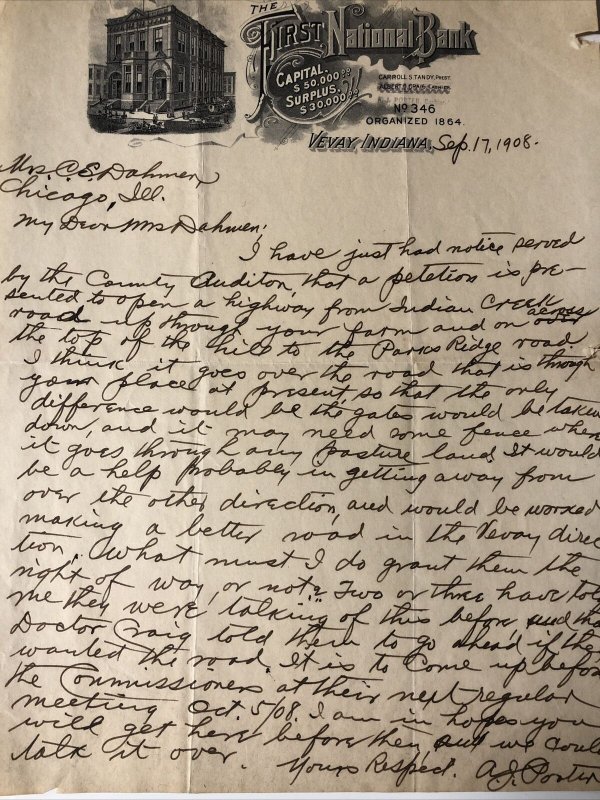 THE
FIRST National Bank
CAPITAL.
$50,000.00
SURPLUS.
$30,000.00
CARROLL S. TANDY, PREST.
No 346
ORGANIZED 1864.
VEVAY, INDIANA, Sep. 17, 1908.
Mrs. C. E. Dahmen,
Chicago, Ill.
My Dear Mrs Dahmen;
I have just had notice served
by the County Auditor, that a petetion is pre-
sented to open a highway from Indian Creek
road up through your farm and on across
the top of the hill to the Parks Ridge road
I think it goes over the road that is through
your place at present, so that the only
difference would be the gates would be taken
down, and it may need some fence where
it goes through any pasture land. It would
be a help probably in getting away from
over the other direction, and would be worked
making a better road in the Vevay direc
tion. What must I do grant them the
right of way, or not? Two or three have told
me they were talking of this before, and tha
Doctor Craig told them to go ahead if they
wanted the road. It is to come up before
the Commissioners at their next regular
meeting Oct. 5/08. I am in hopes you
will get here before then, and we could
talk it over.
Yours Respect. A.J. Porter